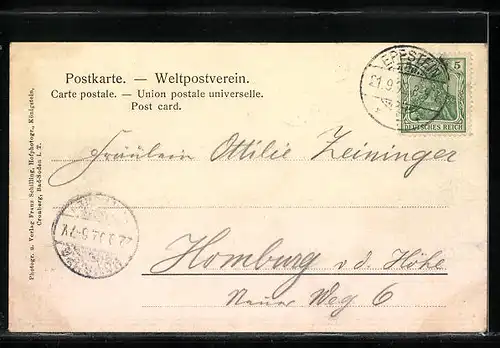 Postkarte. — Weltpostverein.
Carte postale. — Union postale universelle.
Post card.
EPPSTEIN
21.9
5
DEUTSCHES REICH
Fräulein Ottilie Zeininger
Homburg v. d. Höhe
Neuer Weg 6
Photogr. u. Verlag Franz Schilling, Hofphotogr., Königstein,
Cronberg, Bad-Soden i. T.